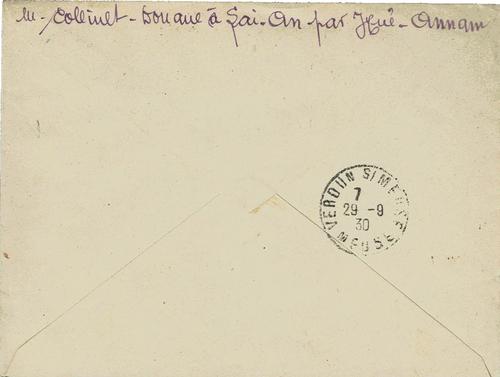 m. Collinet - Douane à Lai-An par Hué - Annam
VERDUN S/MEUSE
7
29 -9
30
MEUSE